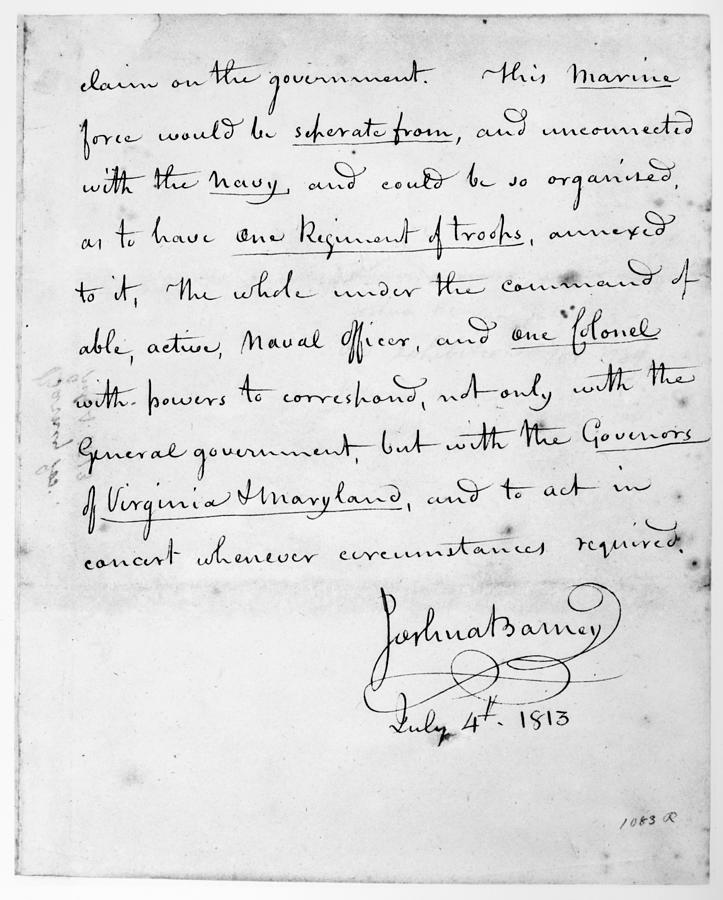 claim on the government. This Marine
force would be seperate from, and unconnected
with the Navy, and could be so organised,
as to have one Regiment of troops, annexed
to it, The whole under the command of
able, active, Naval Officer, and one Colonel
with powers to correspond, not only with the
General government, but with the Govenors
of Virginia & Maryland, and to act in
concert whenever circumstances required.
Joshua Barney
July 4th. 1813
1083 R